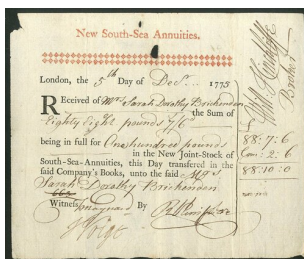 New South-Sea Annuities.
London, the 5th Day of Decr. 1775
Received of Mrs. Sarah Doratley Brickenden
the Sum of
Eighty Eight pounds 7/6
being in full for One hundred pounds
in the New Joint-Stock of
South-Sea-Annuities, this Day transfered in the
said Company's Books, unto the said Mrs
Sarah Doratley Brickenden
Witness By
Broker
88:7:6
Com: 2:6
88:10:0